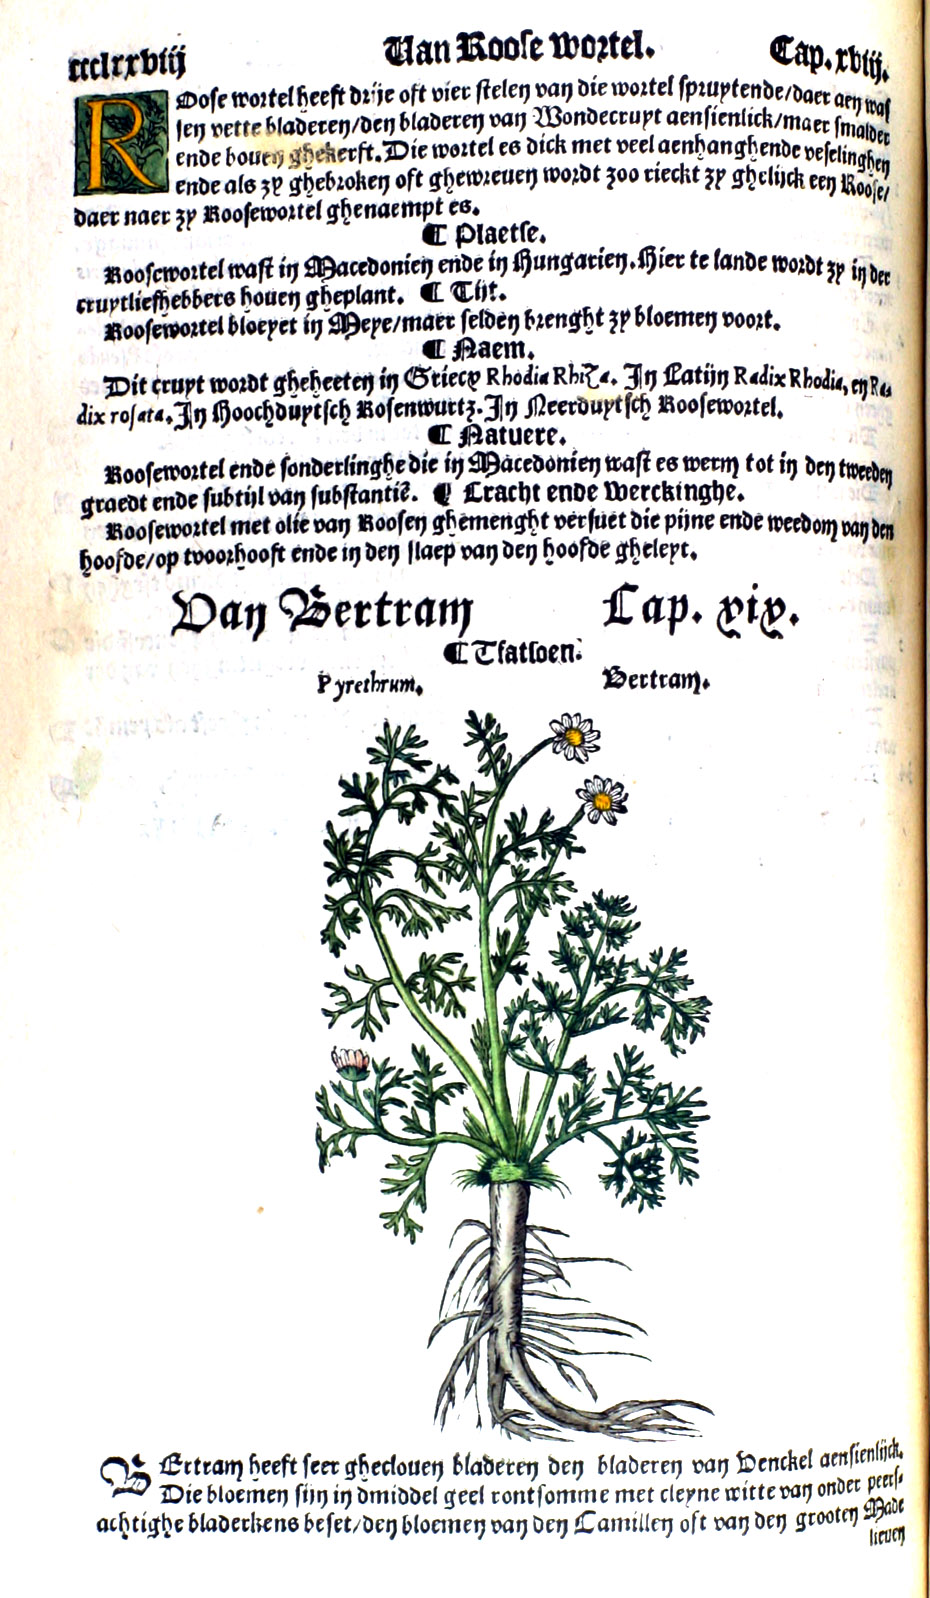 ccclxxviij Van Roose wortel. Cap. xviij.
ROose wortel heeft drije oft vier stelen van die wortel spruytende/daer aen was
sen vette bladeren/den bladeren van Wondecruyt aensienlick/maer smalder
ende boven ghekerft. Die wortel es dick met veel aenhanghende veselinghen
ende als zy ghebroken oft ghewreven wordt zoo rieckt zy ghelijck een Roose/
daer naer zy Roosewortel ghenaempt es.
¶ Plaetse.
Roosewortel wast in Macedonien ende in Hungarien. Hier te lande wordt zy in der
cruytliefhebbers hoven gheplant. ¶ Tijt.
Roosewortel bloeyet in Meye/maer selden brenght zy bloemen voort.
¶ Naem.
Dit cruyt wordt gheheeten in Griecx Rhodia Rhiza. In Latijn Radix Rhodia, en Ra-
dix rosata. In Hoochduytsch Rosenwurtz. In Neerduytsch Roosewortel.
¶ Natuere.
Roosewortel ende sonderlinghe die in Macedonien wast es werm tot in den tweeden
graedt ende subtijl van substantiē. ¶ Cracht ende Werckinghe.
Roosewortel met olie van Roosen ghemenght versuet die pijne ende weedom van den
hoofde/op tvoorhooft ende in den slaep van den hoofde gheleyt.
Van Bertram Cap. xix.
¶ Tsatsoen.
Pyrethrum. Bertram.
BErtram heeft seer ghecloven bladeren den bladeren van Venckel aensienlijck.
Die bloemen sijn in dmiddel geel rontsomme met cleyne witte van onder peers-
achtighe bladerkens beset/den bloemen van den Camillen oft van den grooten Made
lieven